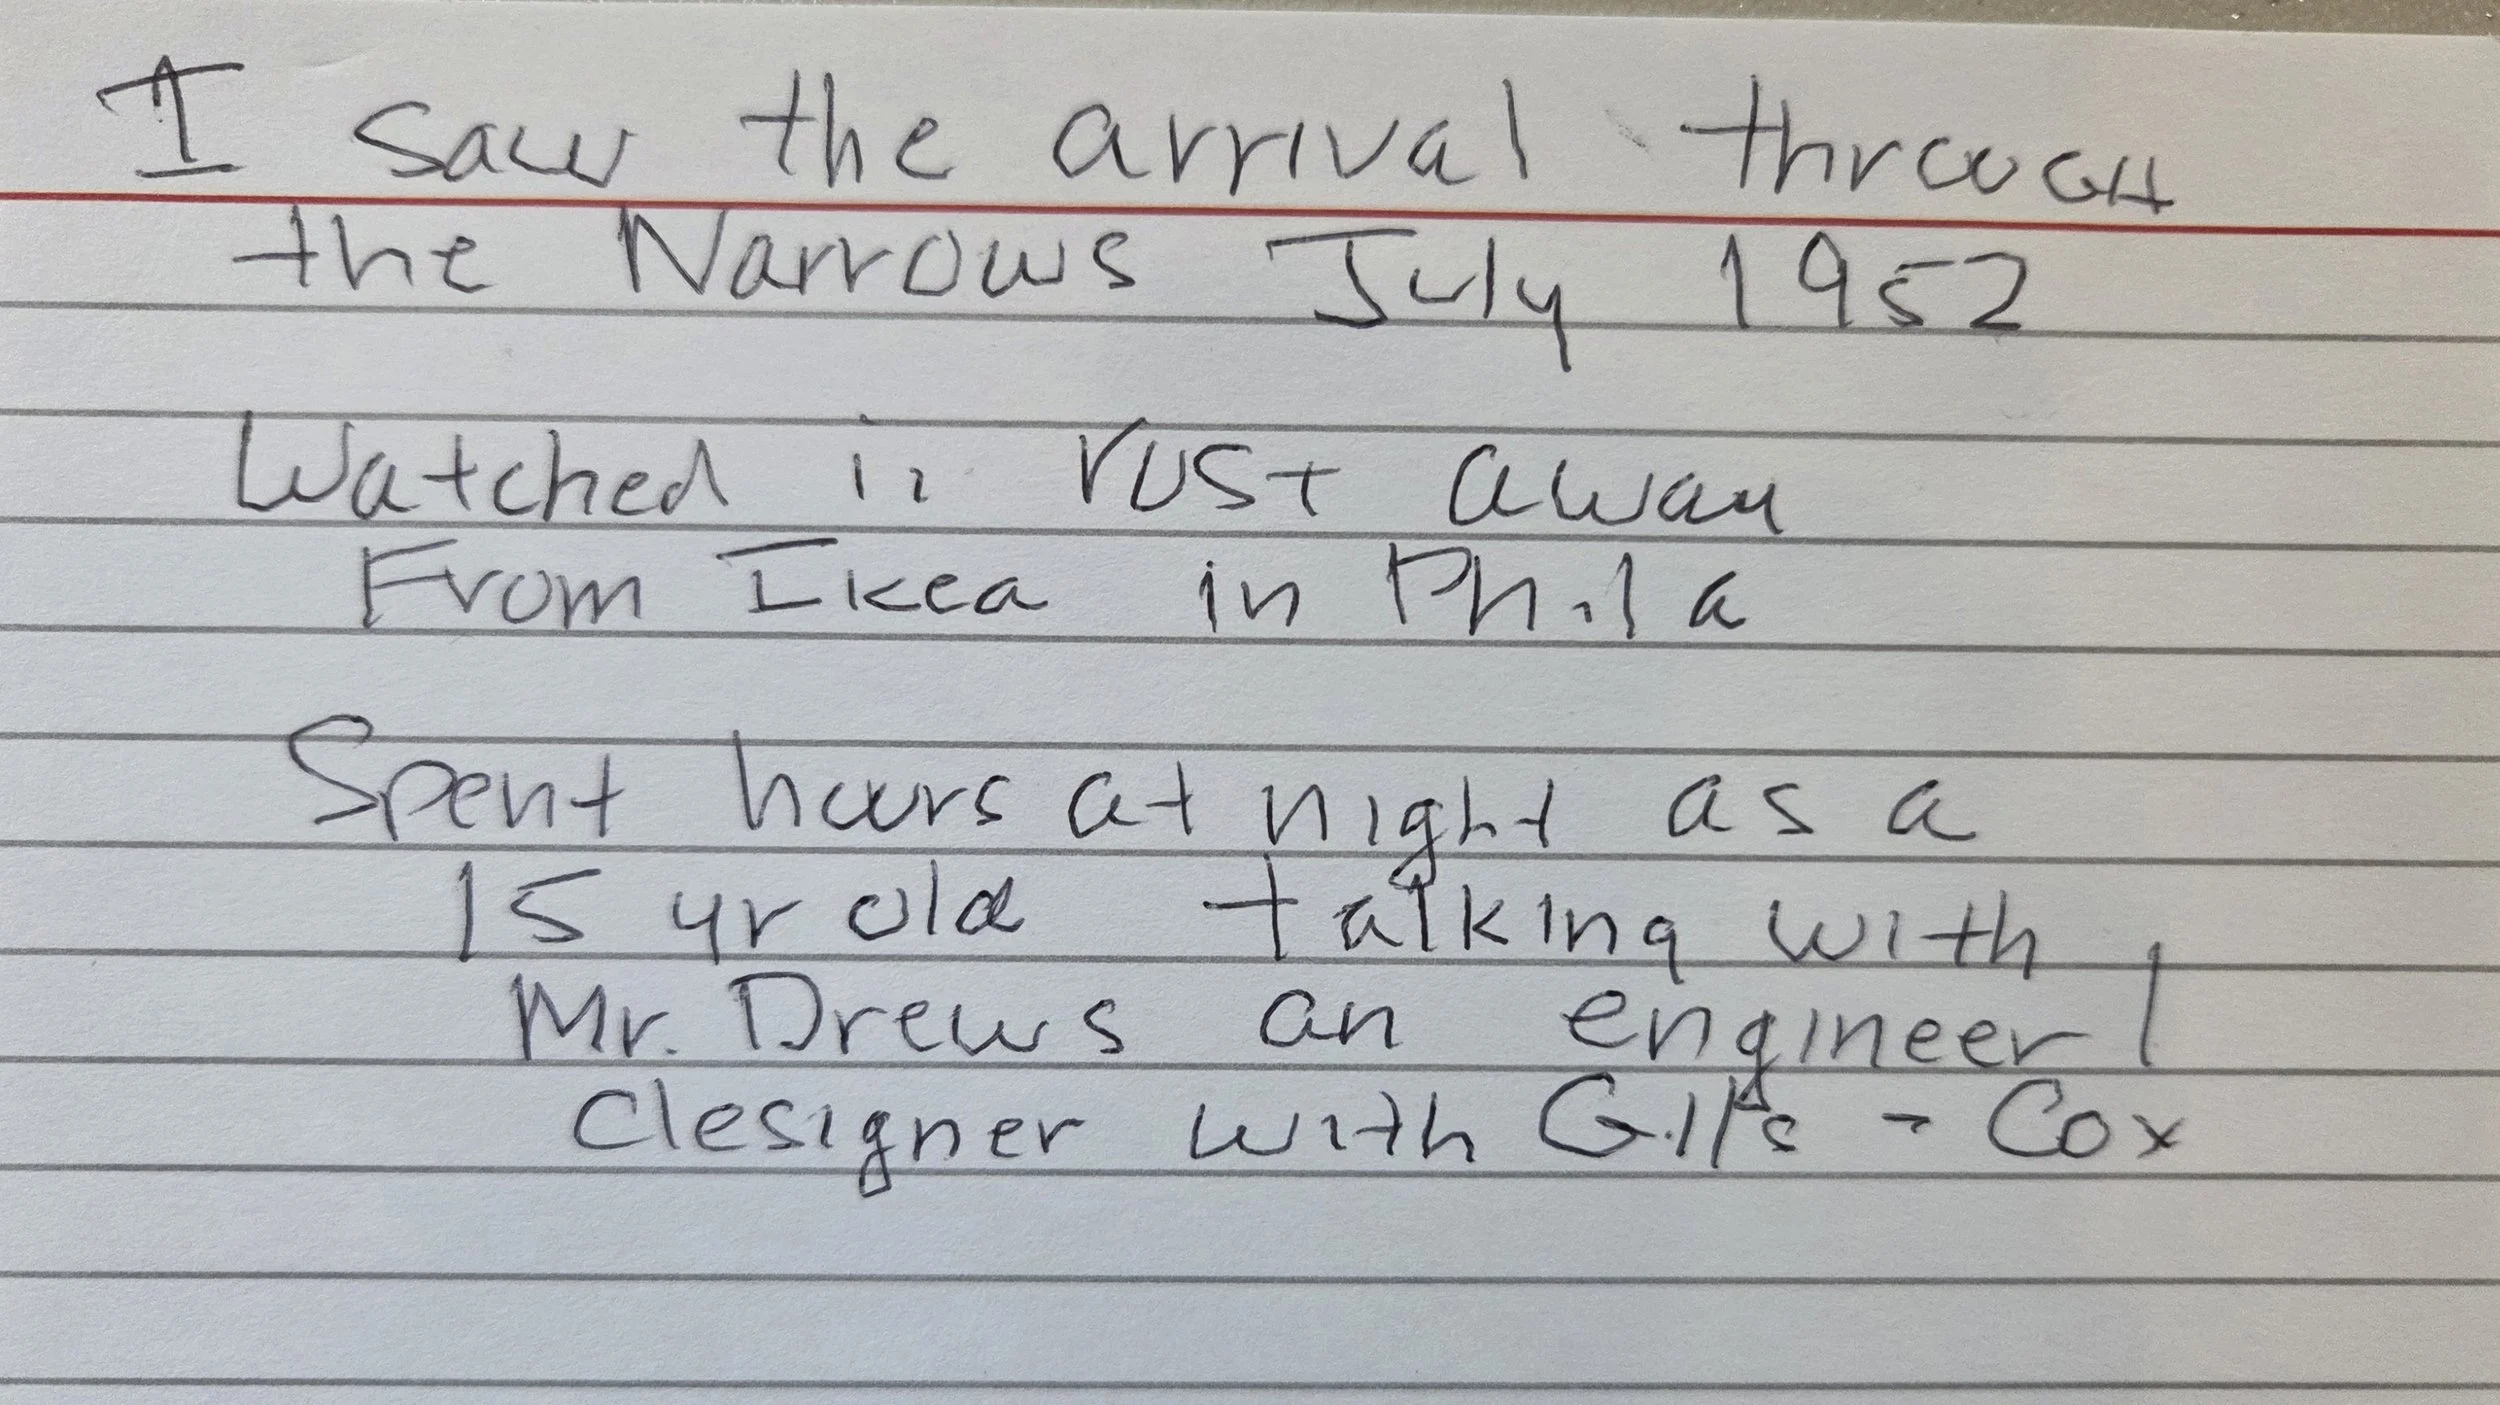 I saw the arrival through
the Narrows July 1952
Watched it rust away
From Ikea in Phila
Spent hours at night as a
15 yr old talking with
Mr. Drews an engineer/
designer with Gibbs - Cox